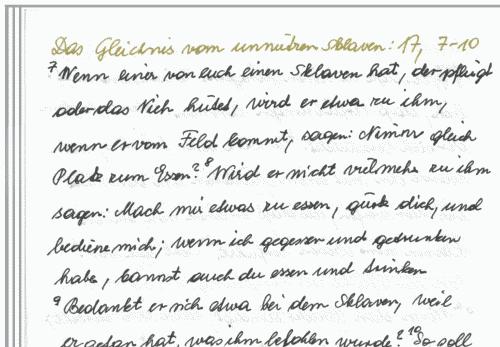 Das Gleichnis vom unnützen Sklaven: 17, 7-10
7 Wenn einer von euch einen Sklaven hat, der pflügt
oder das Vieh hütet, wird er etwa zu ihm,
wenn er vom Feld kommt, sagen: Nimm gleich
Platz zum Essen? 8 Wird er nicht vielmehr zu ihm
sagen: Mach mir etwas zu essen, gürte dich, und
bediene mich; wenn ich gegessen und getrunken
habe, kannst auch du essen und trinken
9 Bedankt er sich etwa bei dem Sklaven, weil
er getan hat, was ihm befohlen wurde? 10 So soll